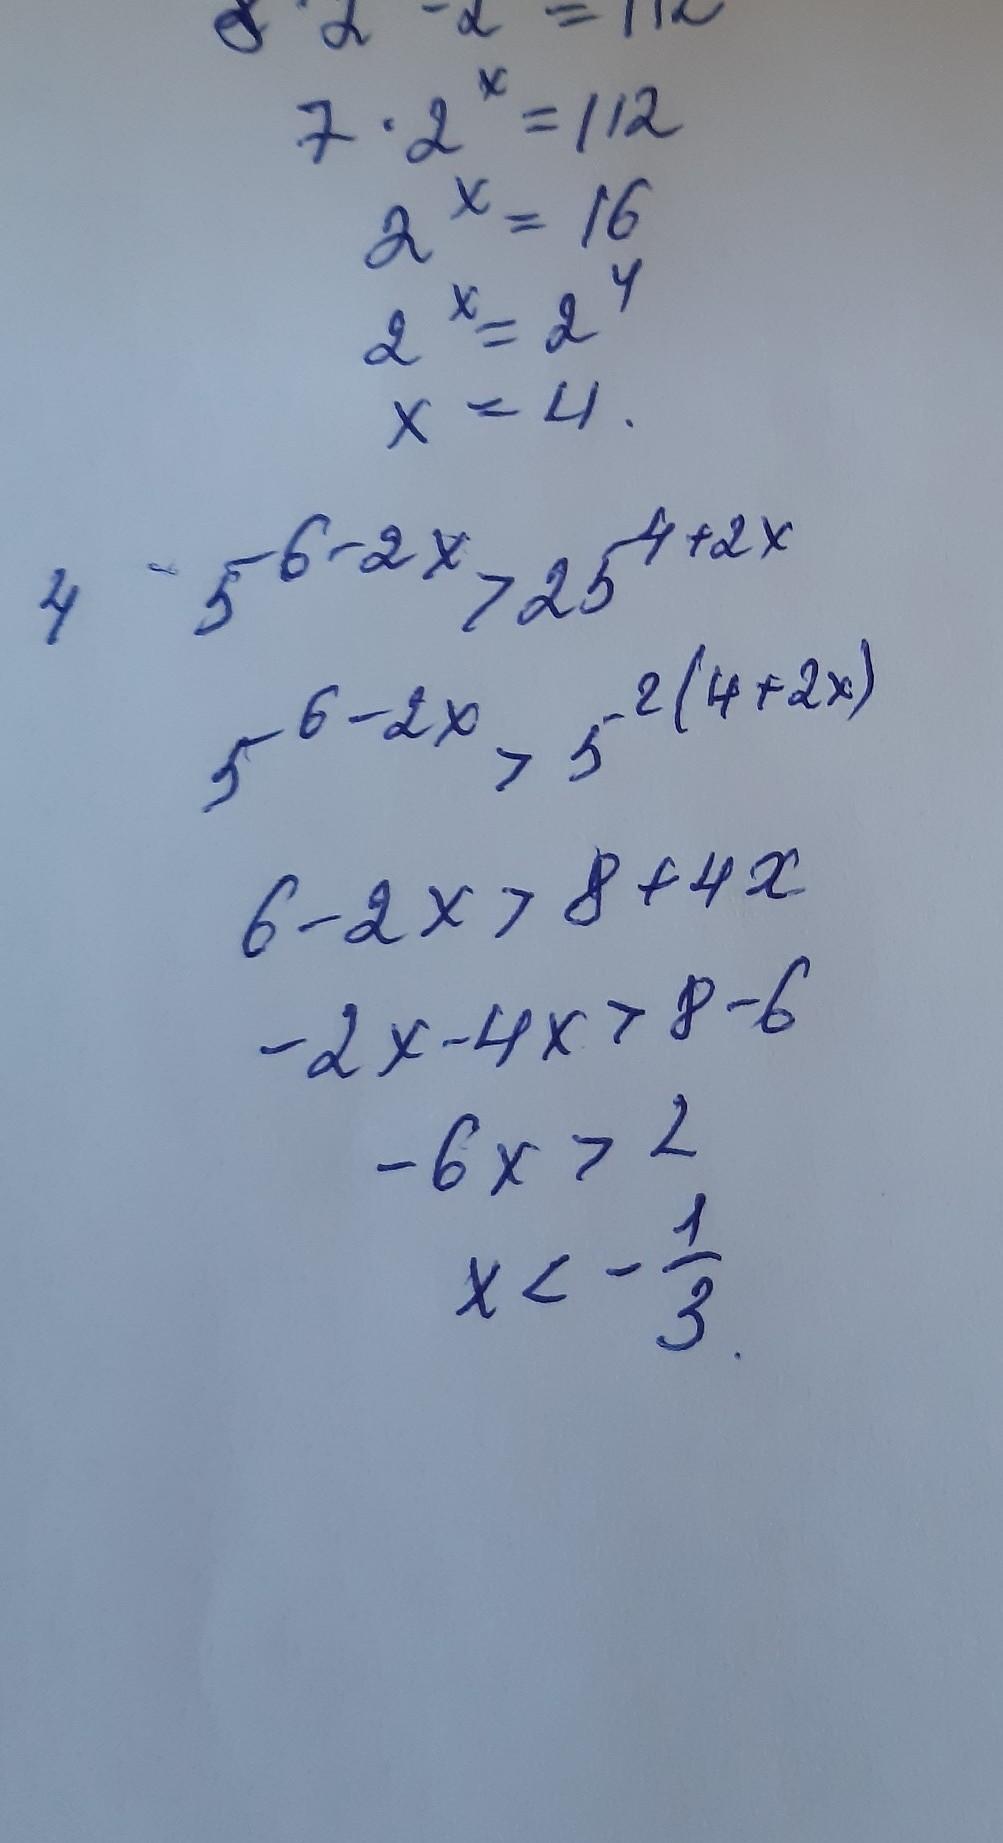 8 · 2 - 2 = 112
7 · 2^x = 112
2^x = 16
2^x = 2^4
x = 4.
4 - 5^{6-2x} > 25^{4+2x}
5^{6-2x} > 5^{2(4+2x)}
6-2x > 8+4x
-2x-4x > 8-6
-6x > 2
x < -\frac{1}{3}.